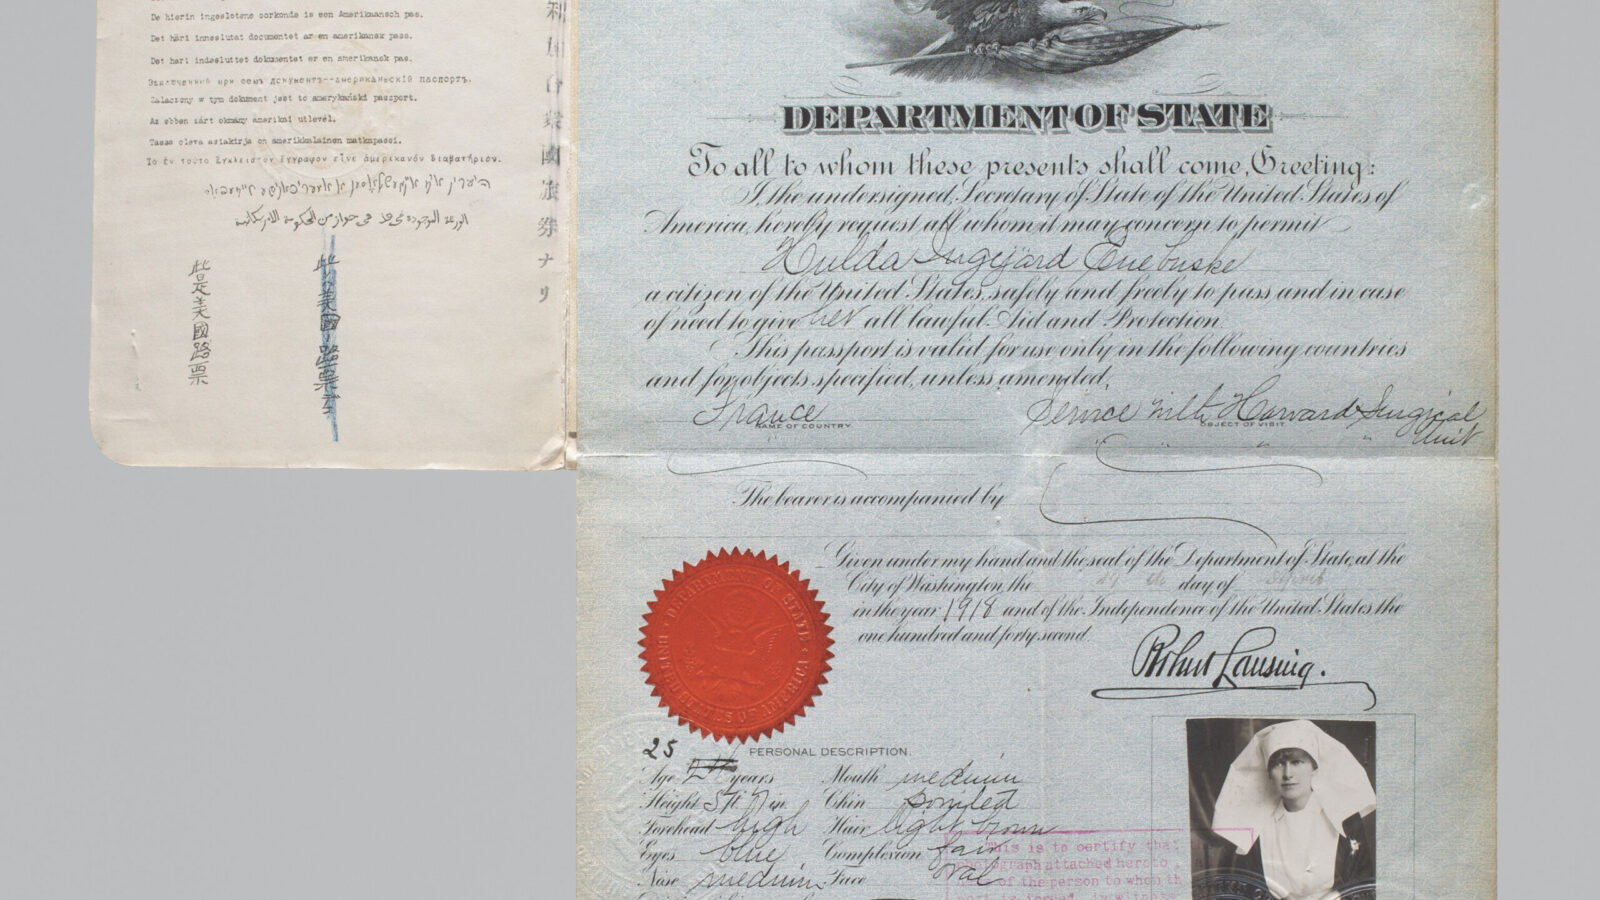 De hierin ingeslotene oorkonde is een Amerikaansch pas.
Det häri inneslutat documentet ar en amerikansk pass.
Det heri indesluttet dokumentet er en amerikansk pas.
Zalaczony w tym dokument jest to amerykański paszport.
Az ebben zárt okmány amerikai utlevél.
Tassa oleva asiakirja on amerikkalainen matkapassi.
Το ἐν τούτο Ἔγγραφον εἶνε ἀμερικανὸν διαβατήριον.
此是美國路票
國旅券ナリ
DEPARTMENT OF STATE
To all to whom these presents shall come, Greeting:
I, the undersigned, Secretary of State of the United States of
America, hereby request all whom it may concern to permit
Hulda Ingejärd Enebuske
a citizen of the United States, safely and freely to pass and in case
of need to give her all lawful Aid and Protection.
This passport is valid for use only in the following countries
and for objects specified, unless amended.
France Service with Harvard Surgical
NAME OF COUNTRY OBJECT OF VISIT
Unit
The bearer is accompanied by
Given under my hand and the seal of the Department of State, at the
City of Washington, the day of
in the year 1918 and of the Independence of the United States the
one hundred and forty second.
Robert Lansing.
DEPARTMENT OF STATE
UNITED STATES OF AMERICA
25 PERSONAL DESCRIPTION.
Age years Mouth medium
Height 5 ft 7 in. Chin pointed
Forehead high Hair light brown
Eyes blue Complexion fair
Nose medium Face oval
This is to certify that
photograph attached hereto
of the person to whom th